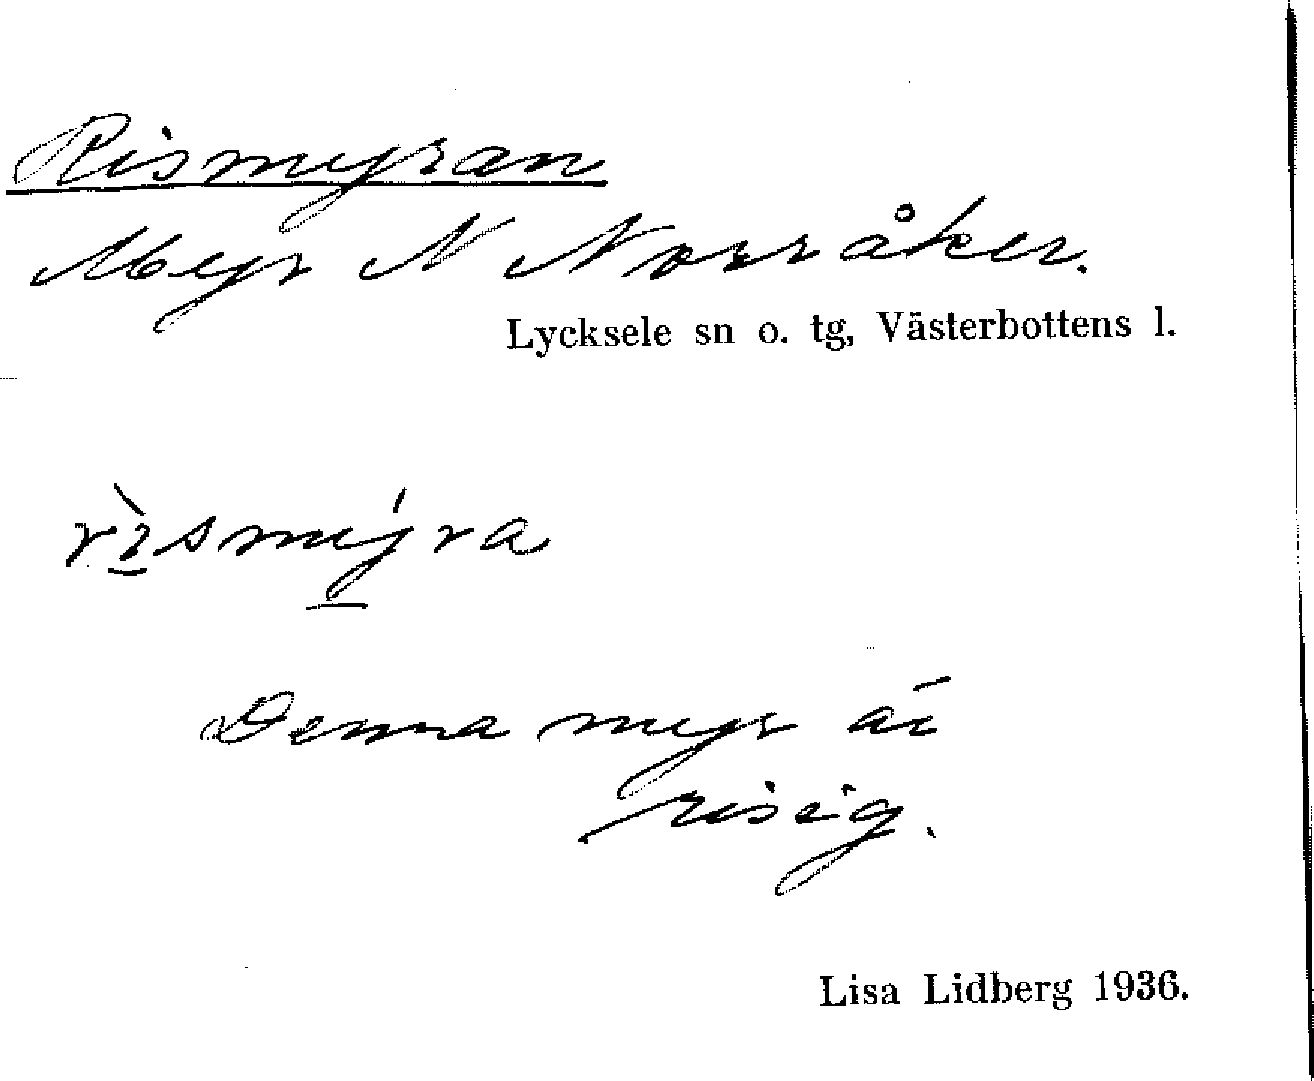 Rismyran
Myr N Norråker.
Lycksele sn o. tg, Västerbottens l.
rìsmýra
Denna myr är
risig.
Lisa Lidberg 1936.